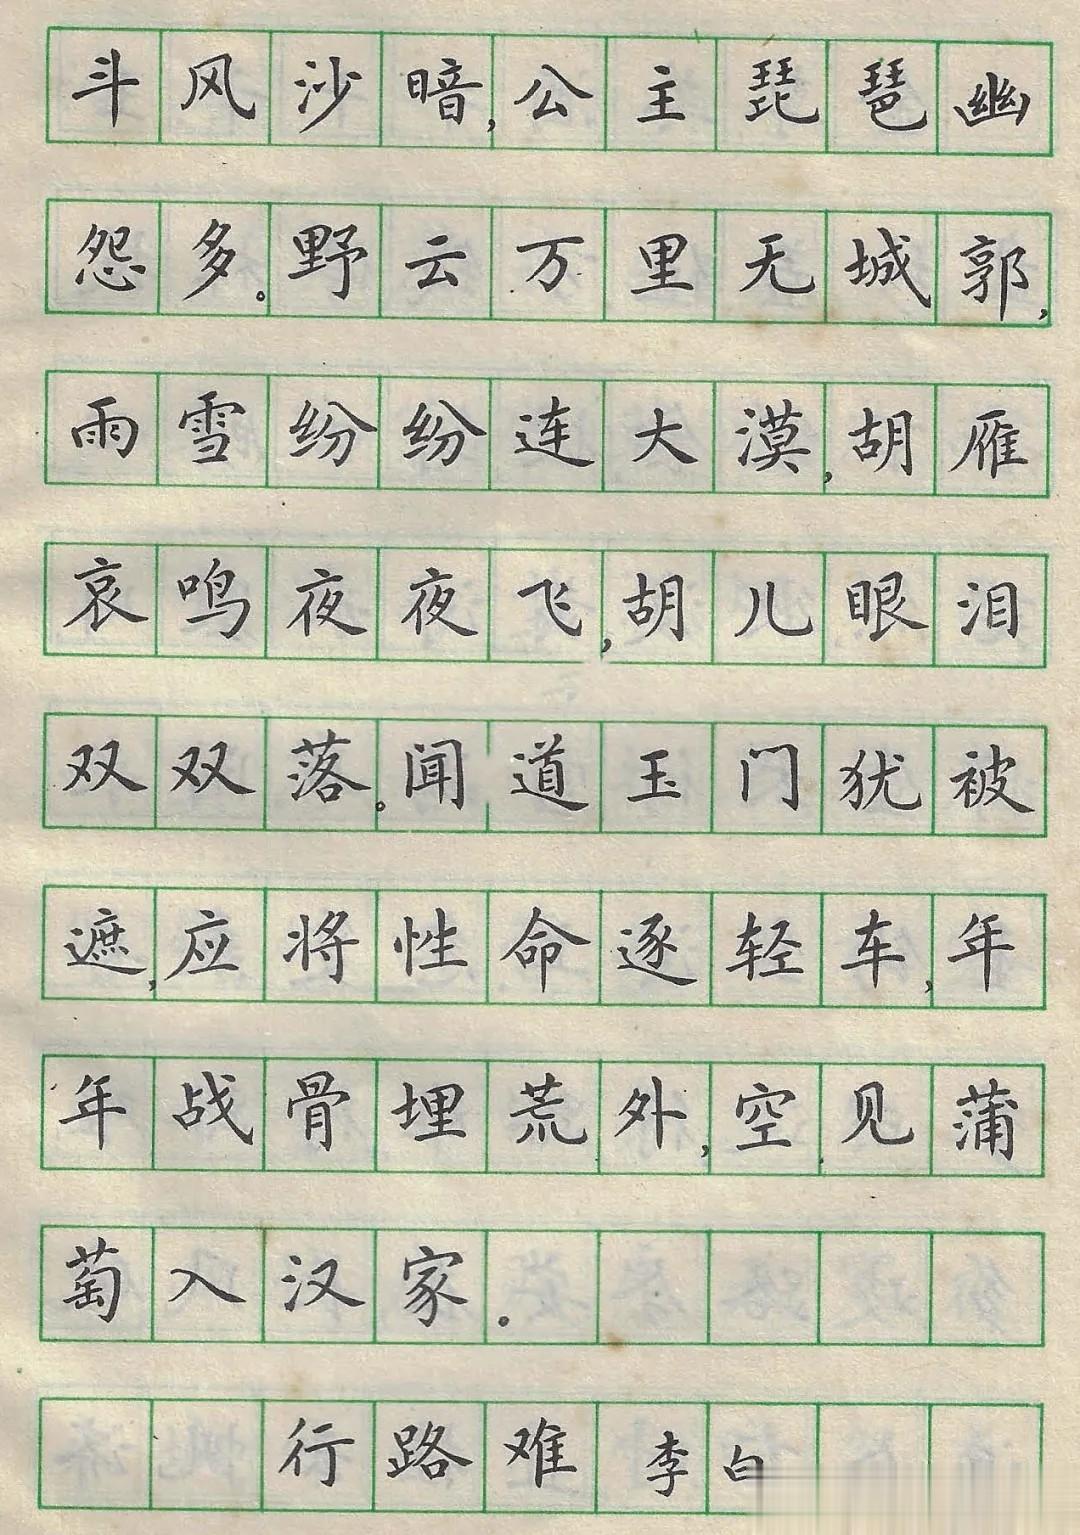 斗风沙暗,公主琵琶幽
怨多。野云万里无城郭,
雨雪纷纷连大漠,胡雁
哀鸣夜夜飞,胡儿眼泪
双双落。闻道玉门犹被
遮,应将性命逐轻车,年
年战骨埋荒外,空见蒲
萄入汉家。
行路难 李白